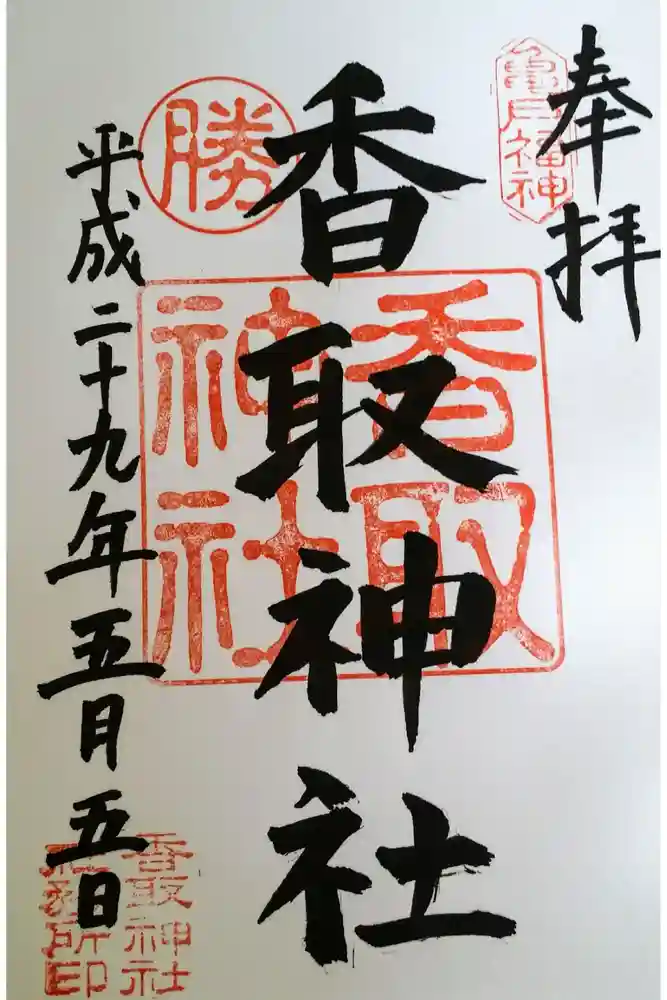 奉拝
亀戸福神
香取神社
香取神社
勝
平成二十九年五月五日
香取神社
社務所印